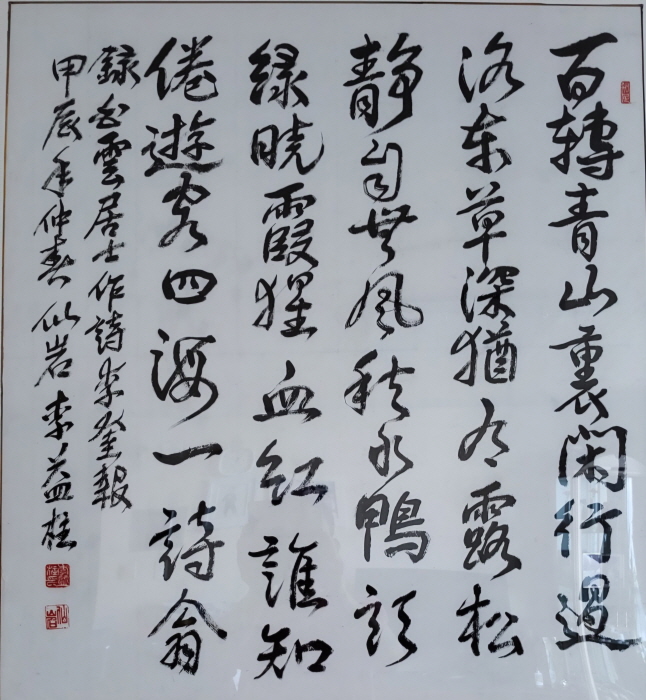 百轉青山裏閑行過
洛東草深猶有露松
靜自無風秋水鴨頭
綠曉霞猩血紅誰知
倦遊客四海一詩翁
錄白雲居士作詩李奎報
甲辰年仲春 似岩 李益柱